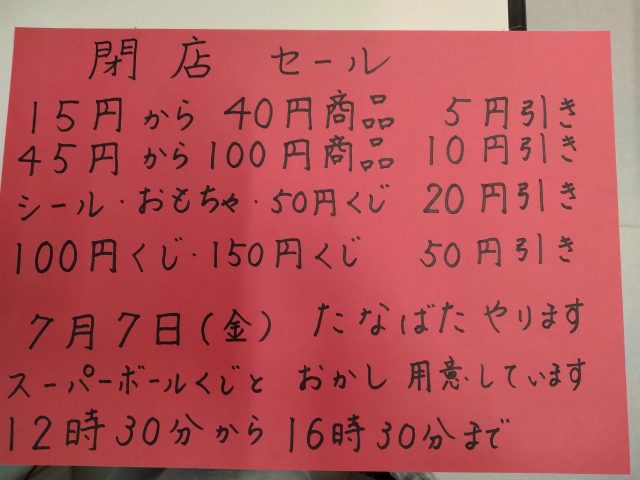 閉店 セール
15円から40円商品 5円引き
45円から100円商品 10円引き
シール・おもちゃ・50円くじ 20円引き
100円くじ・150円くじ 50円引き
7月7日(金) たなばたやります
スーパーボールくじと おかし 用意しています
12時30分から16時30分まで